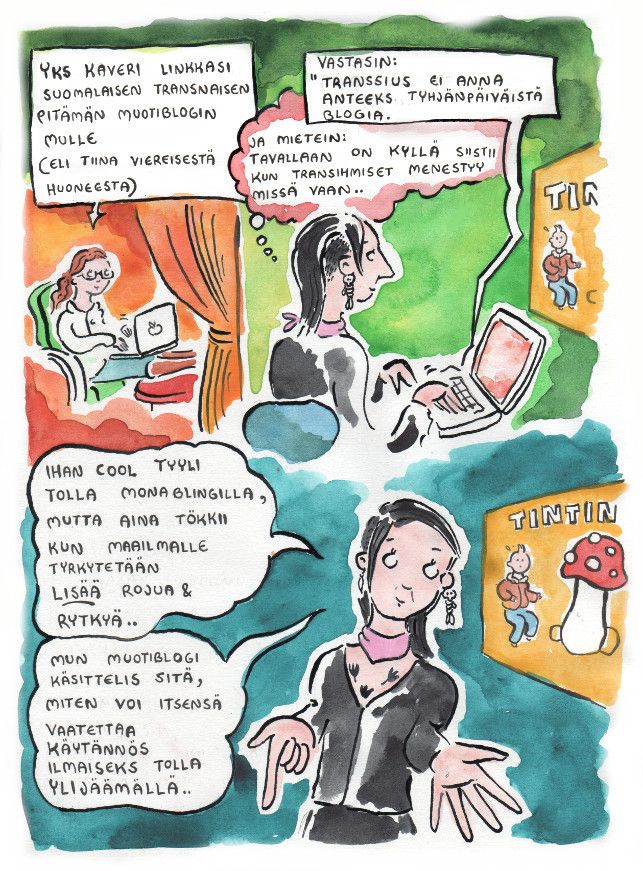 YKS KAVERI LINKKASI
SUOMALAISEN TRANSNAISEN
PITÄMÄN MUOTIBLOGIN
MULLE
(ELI TIINA VIEREISESTÄ
HUONEESTA)
VASTASIN:
"TRANSSIUS EI ANNA
ANTEEKS TYHJÄNPÄIVÄISTÄ
BLOGIA.
JA MIETEIN:
TAVALLAAN ON KYLLÄ SIISTII
KUN TRANSIHMISET MENESTYY
MISSÄ VAAN..
TINTIN
IHAN COOL TYYLI
TOLLA MONA BLINGILLA,
MUTTA AINA TÖKKII
KUN MAAILMALLE
TYRKYTETÄÄN
LISÄÄ ROJUA &
RYTKYÄ..
TINTIN
MUN MUOTIBLOGI
KÄSITTELIS SITÄ,
MITEN VOI ITSENSÄ
VAATETTAA
KÄYTÄNNÖS
ILMAISEKS TOLLA
YLIJÄÄMÄLLÄ..